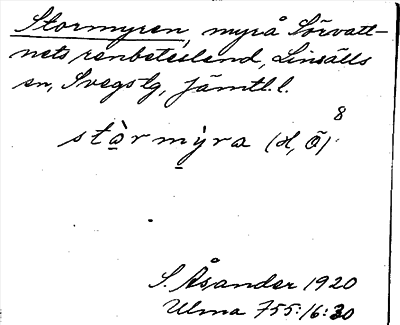 Stormyren, myrå Sörvatt-
nets renbetesland, Linsälls
sn, Svegs tg, Jämtl. l.
8
stàrmỳra (H, Ö).
S. Åsander 1920
Ulma 755:16:30